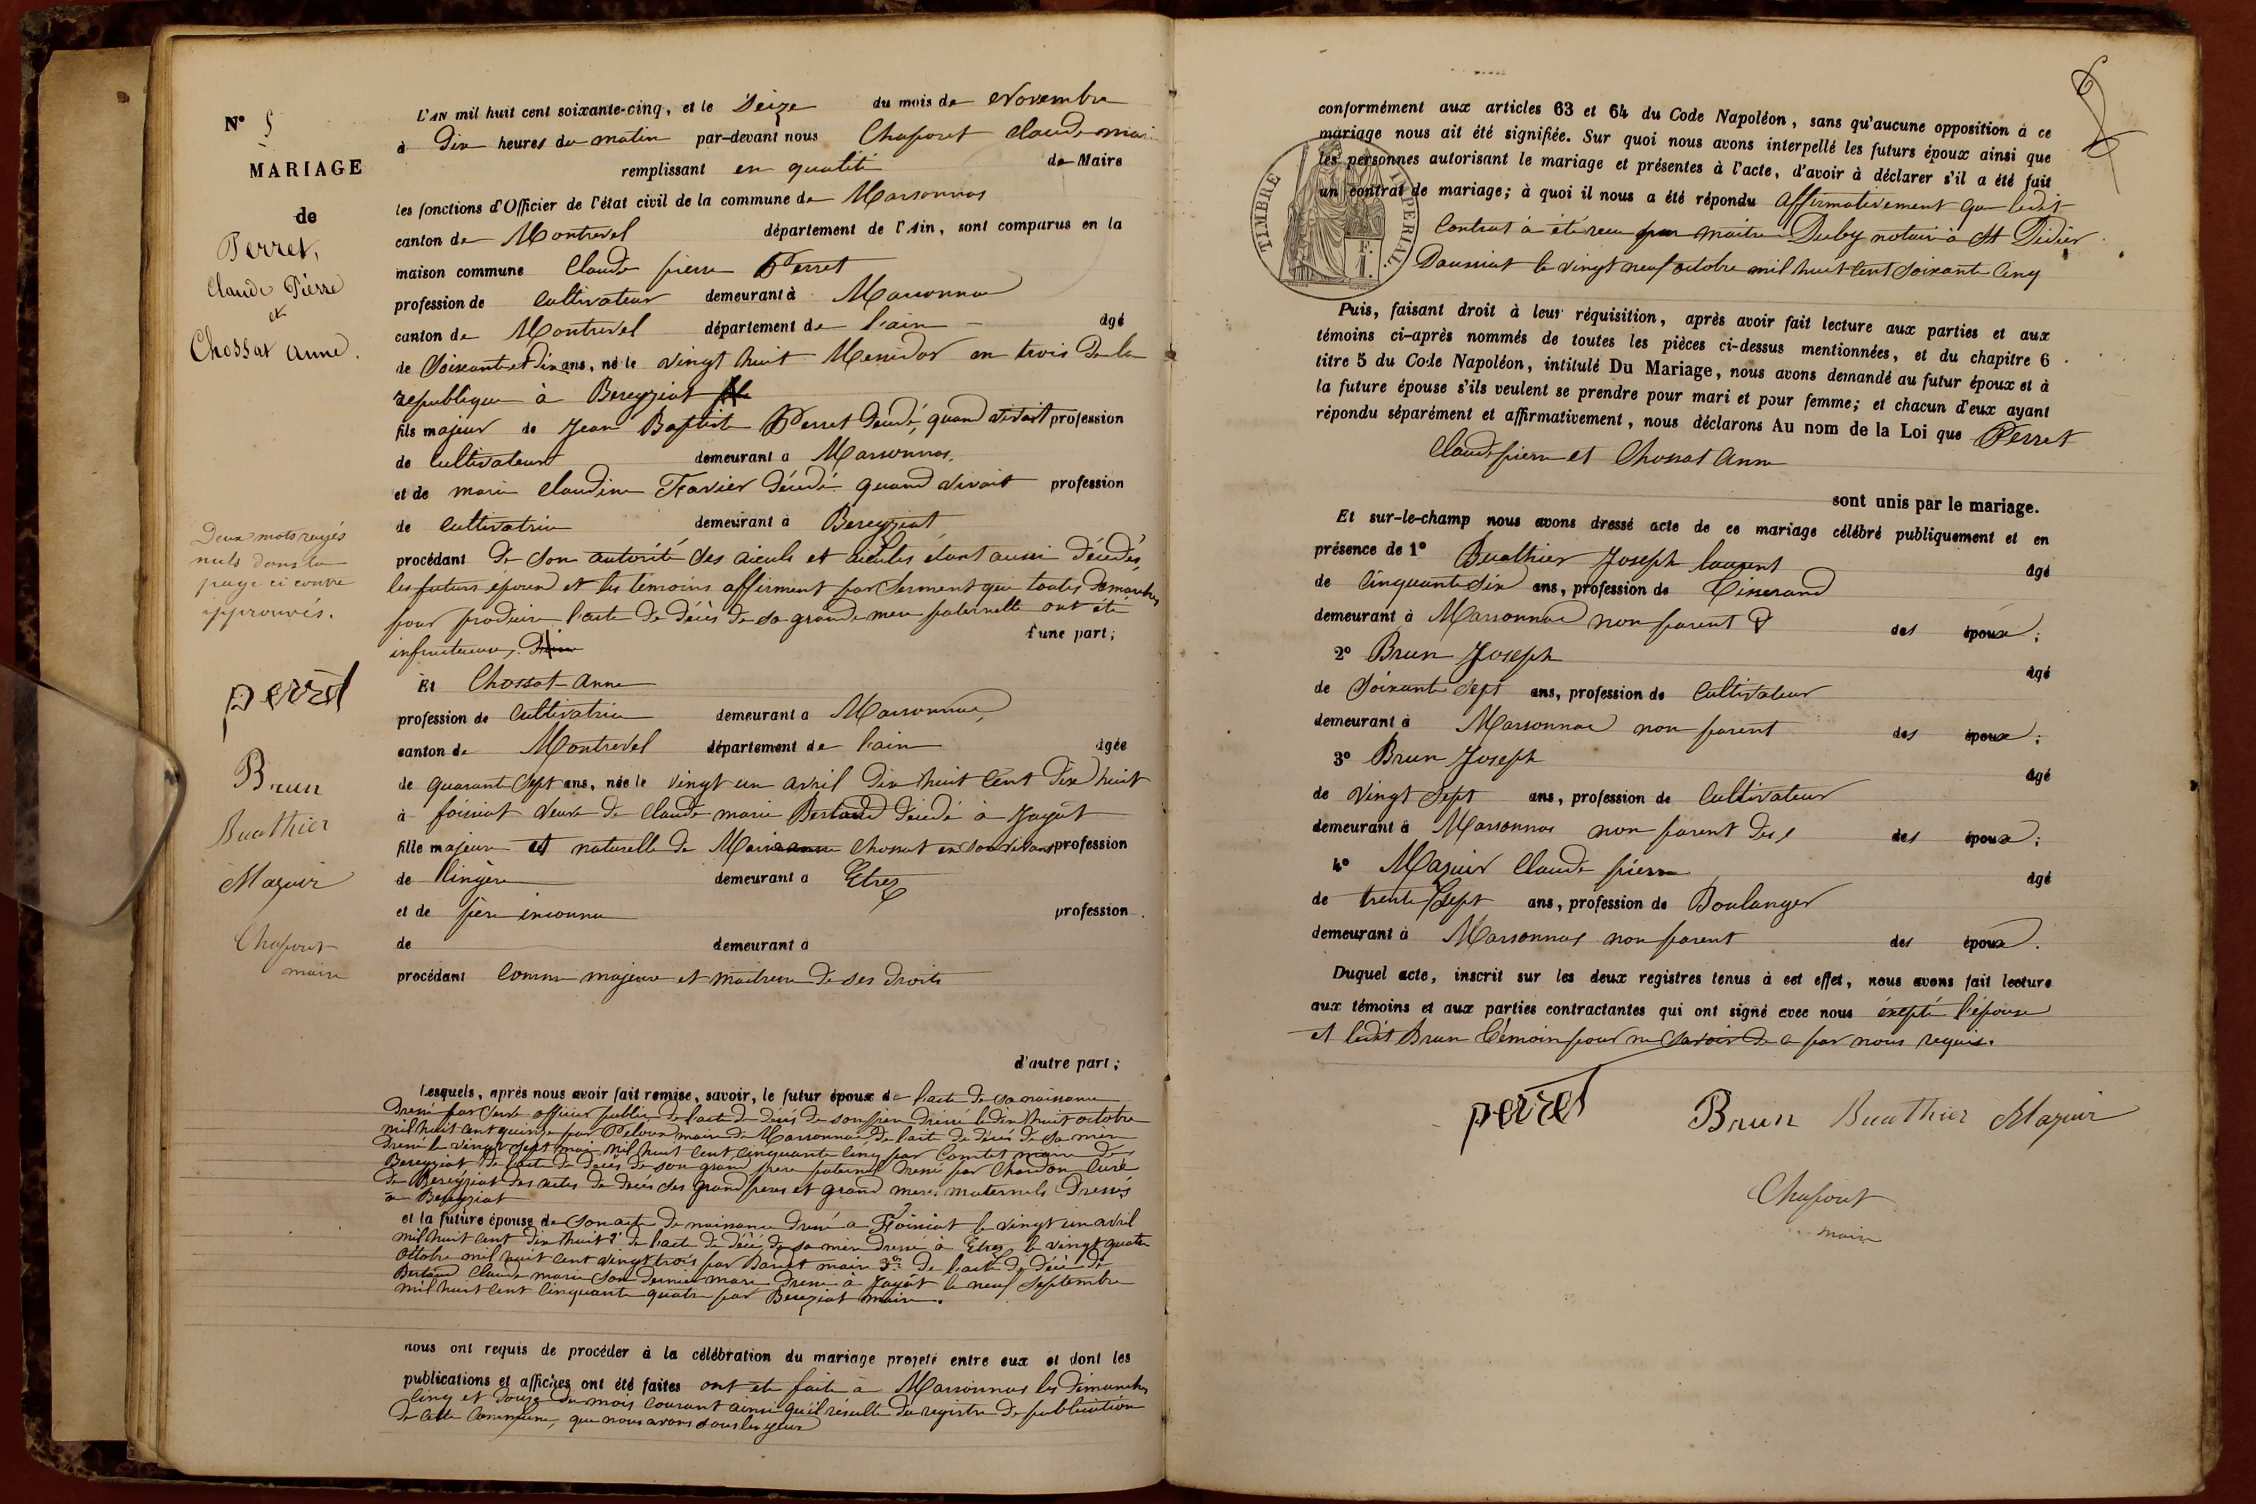 N° 5
MARIAGE
de
Perret,
Claude Pierre
et
Chossat Anne.
Deux mots rayés
nuls dans la
page ci contre
approuvés.
perret
Brun
Buathier
Mazuir
Chapout
maire
L'AN mil huit cent soixante-cinq, et le Seize du mois de Novembre
à Dix heures du matin par-devant nous Chapout Claude marie
remplissant en qualité de Maire
les fonctions d'Officier de l'état civil de la commune de Marsonnas
canton de Montrevel département de l'Ain, sont comparus en la
maison commune Claude pierre Perret
profession de Cultivateur demeurant à Marsonnas
canton de Montrevel département de l'ain âgé
de Soixante et Dix ans, né le vingt huit Messidor an trois De la
republique à Bereyziat
fils majeur de Jean Baptiste Perret décédé, quand vivait profession
de Cultivateur demeurant à Marsonnas,
et de marie Claudine Favier décédé quand vivait profession
de Cultivatrice demeurant à Bereyziat
procédant de son autorité ses aieuls et aieules étant aussi décédés,
les futurs époux et les témoins affirment par serment que toutes demarches
pour produire l'acte de décès de sa grande mere paternelle ont été
infructueuses. d'une part;
Et Chossat Anne
profession de Cultivatrice demeurant à Marsonnas,
canton de Montrevel département de l'ain âgée
de quarante Sept ans, née le vingt un avril Dix huit Cent Dix huit
à foissiat Veuve de Claude marie Bertaud décédé à Jayat
fille majeure et naturelle de Marie anne Chossat en son vivant profession
de lingère demeurant à Etrez
et de père inconnu profession
de demeurant à
procédant Comme majeure et maitresse de ses droits
d'autre part;
Lesquels, après nous avoir fait remise, savoir, le futur époux de l'acte de sa naissance
Dressé par Serve officier public de l'acte de décès de son père dressé le dix huit octobre
mil huit cent quinze par Peloux maire de Marsonnas, de l'acte de décès de sa mère
Dressé le vingt sept mai mil huit cent cinquante cinq par Comtet maire de
Bereyziat de l'acte de décès de son grand pere paternel Dressé par Chardon Curé
de Bereyziat des actes de décès des grand peres et grand meres maternels Dressés
a Bereyziat
et la future épouse de son acte de naissance dressé a Foissiat le vingt un avril
mil huit cent dix huit 2° de l'acte de décé de sa mère dressé à Etrez le vingt quatre
Octobre mil huit cent vingt trois par maire 3° de l'acte de décè de
Bertaud Claude marie son dernier mari Dressé à Jayat le neuf Septembre
mil huit cent cinquante quatre par Bereziat maire.
nous ont requis de procéder à la célébration du mariage projeté entre eux et dont les
publications et affiches ont été faites ont été faite à Marsonnas les Dimanches
Cinq et Douze du mois courant ainsi qu'il résulte du registre de publication
de Cette Commune, que nous avons sous les yeux
conformément aux articles 63 et 64 du Code Napoléon, sans qu'aucune opposition à ce
mariage nous ait été signifiée. Sur quoi nous avons interpellé les futurs époux ainsi que
les personnes autorisant le mariage et présentes à l'acte, d'avoir à déclarer s'il a été fait
un contrat de mariage; à quoi il nous a été répondu affirmativement que ledit
Contrat à été recu par maitre Duby notaire à St Didier
Daussiat le vingt neuf octobre mil huit Cent Soixante Cinq
TIMBRE IMPERIAL.
Puis, faisant droit à leur réquisition, après avoir fait lecture aux parties et aux
témoins ci-après nommés de toutes les pièces ci-dessus mentionnées, et du chapitre 6
titre 5 du Code Napoléon, intitulé Du Mariage, nous avons demandé au futur époux et à
la future épouse s'ils veulent se prendre pour mari et pour femme; et chacun d'eux ayant
répondu séparément et affirmativement, nous déclarons Au nom de la Loi que Perret
Claude pierre et Chossat Anne
sont unis par le mariage.
Et sur-le-champ nous avons dressé acte de ce mariage célébré publiquement et en
présence de 1° Buathier Joseph laurent âgé
de Cinquante Six ans, profession de Tisserand
demeurant à Marsonnas non parent des époux;
2° Brun Joseph âgé
de Soixante Sept ans, profession de Cultivateur
demeurant à Marsonnas non parent des époux;
3° Brun Joseph âgé
de Vingt Sept ans, profession de Cultivateur
demeurant à Marsonnas non parent des des époux;
4° Mazuir Claude pierre âgé
de trente Sept ans, profession de Boulanger
demeurant à Marsonnas non parent des époux.
Duquel acte, inscrit sur les deux registres tenus à cet effet, nous avons fait lecture
aux témoins et aux parties contractantes qui ont signé avec nous éxépté l'épouse
et ledit Brun Témoin pour ne savoir de ce par nous requis.
perret Brun Buathier Mazuir
Chapout
maire